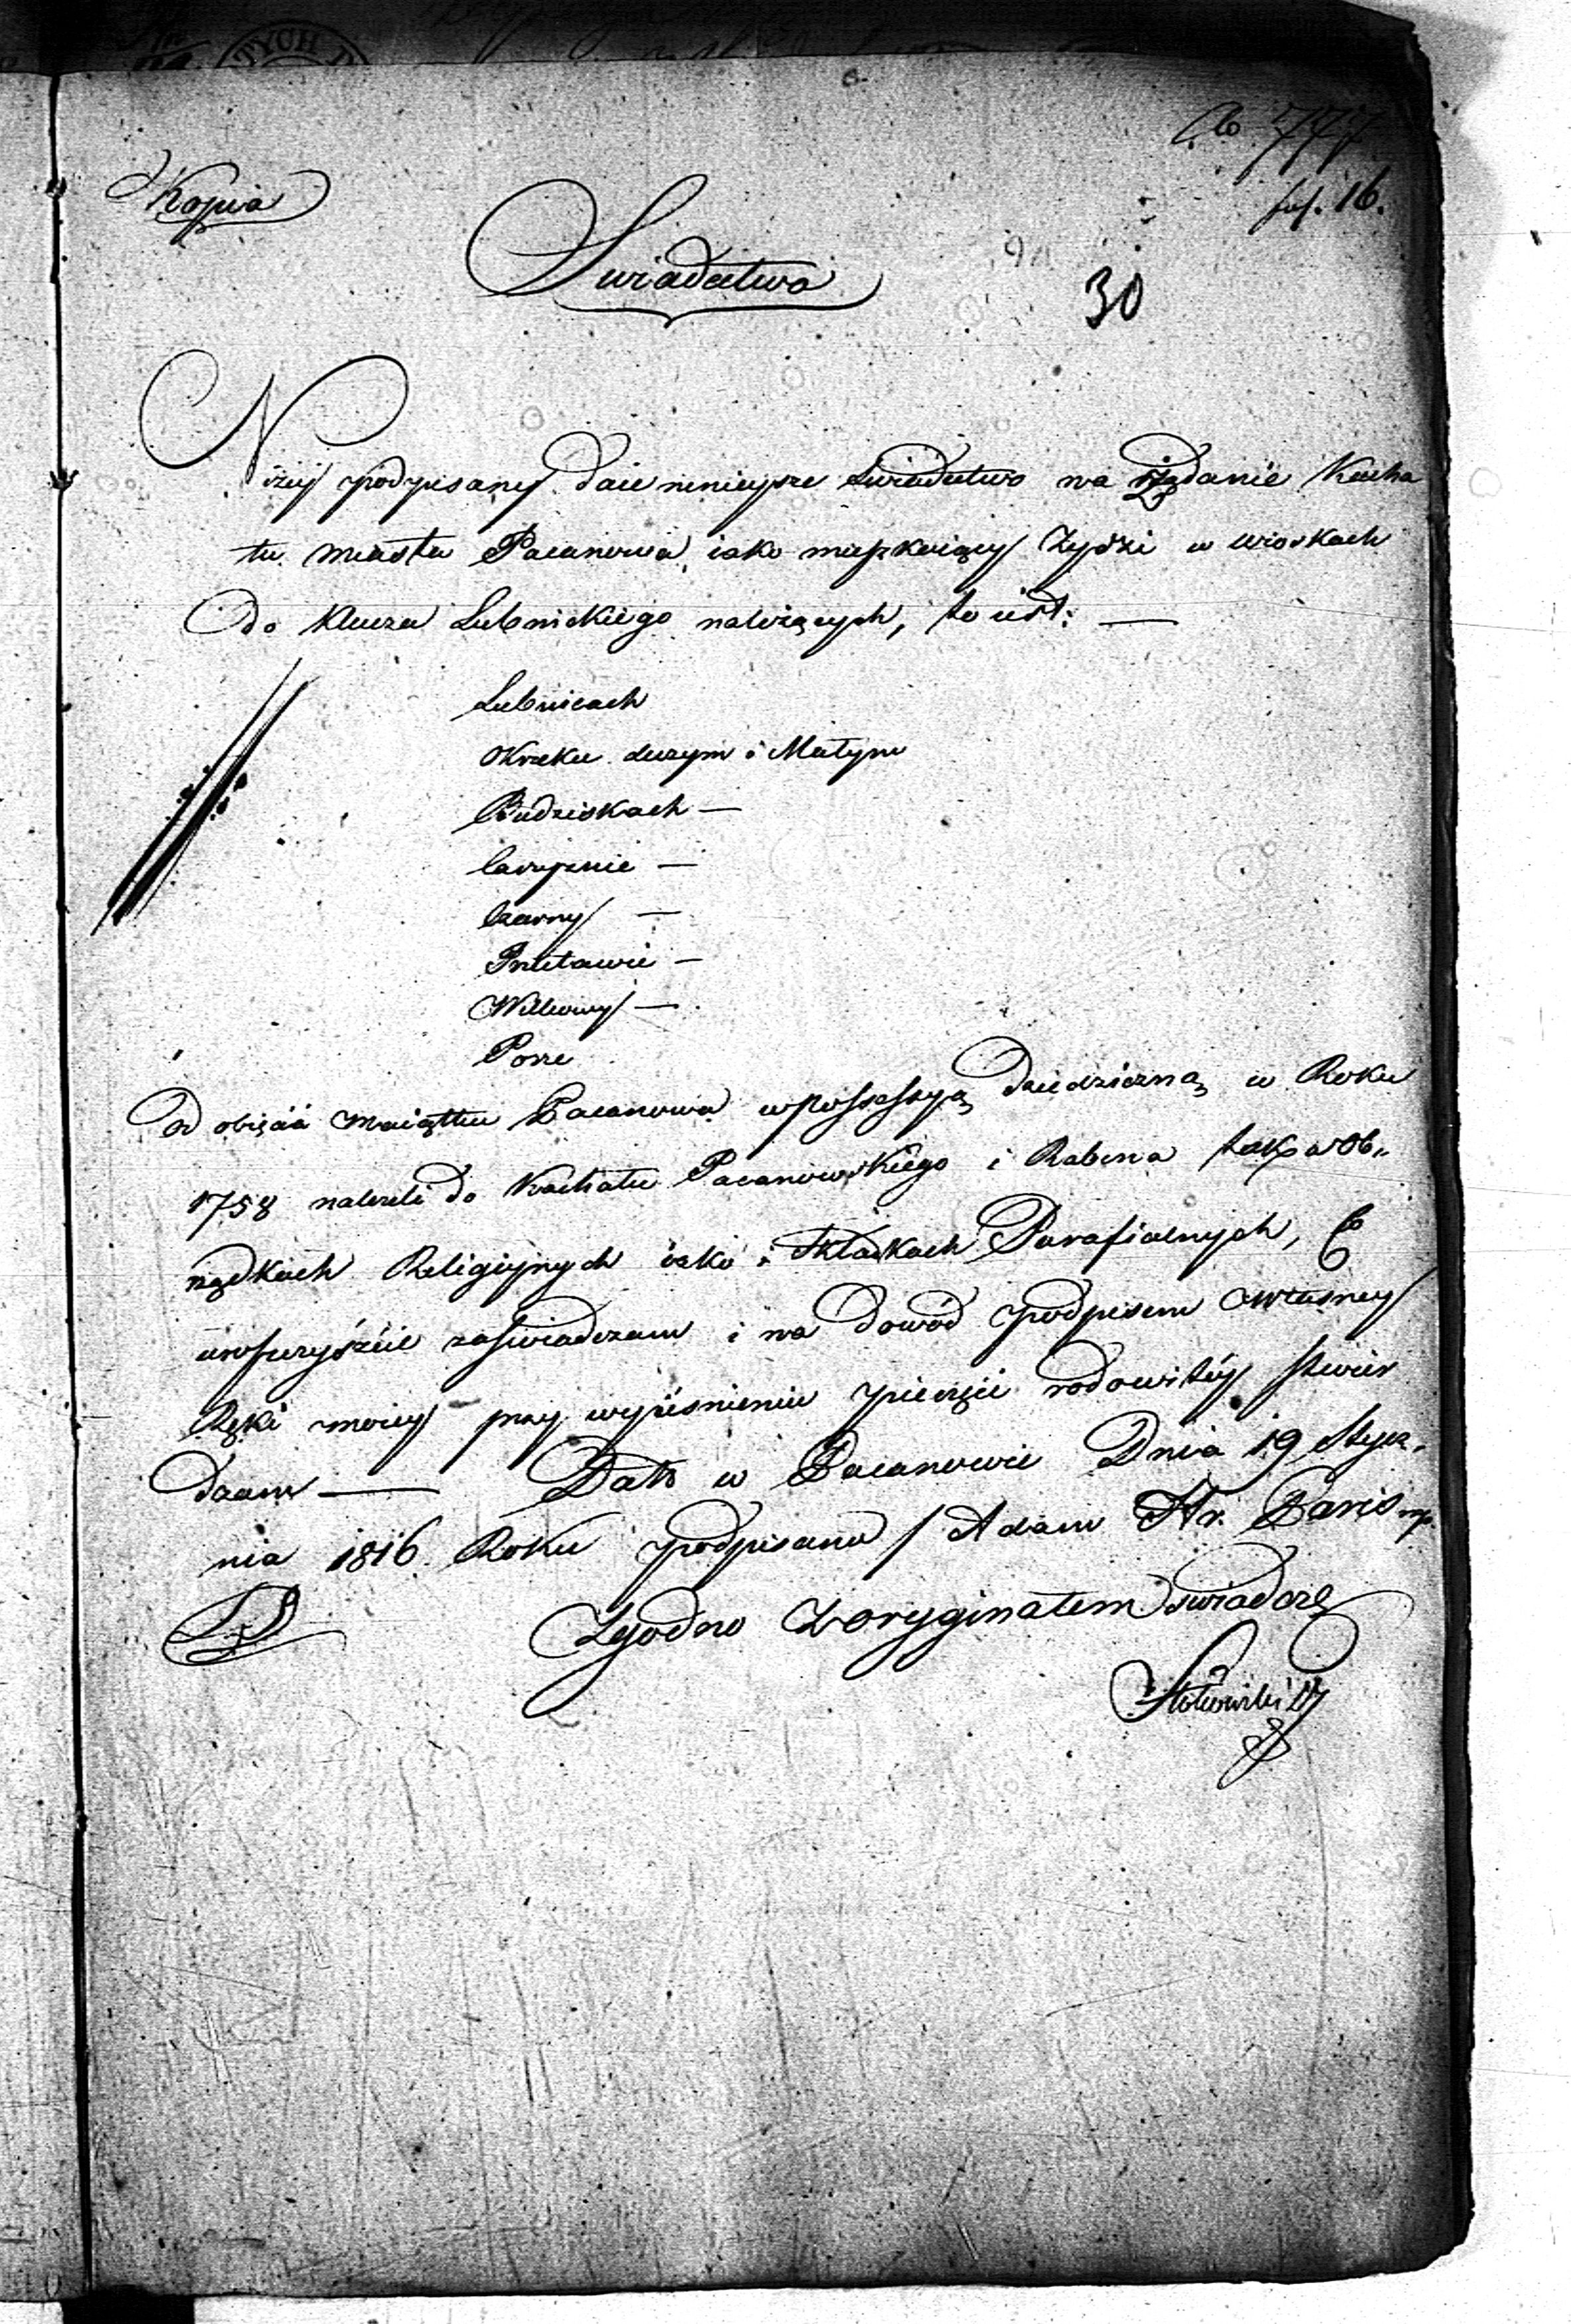 No 777
fol. 16.
Kopia
Swiadectwo
30
Niżey podpisany daie ninieysze swiadectwo na żądanie Kacha
tu miasta Pacanowa, iako mięszkaiący Żydzi w wioskach
do klucza Lubnickiego należących, to iest: —
Lubnicach
Orzeku duzym i Małym
Budziskach —
Czarny —
Przetawie —
Połze
Od obięcia maiątku Pacanowa w possessyą dziedziczną w Roku
1758 nalezeli do Kachatu Pacanowskiego i Rabina tak w Ob„
rządkach Religiynych iako i składkach Parafialnych, Co
urosczyście zaswiadczam i na dowód podpisem własney
Ręki moiey przy wyciśnieniu pieczęci rodowitéy stwier
dzam — Dato w Pacanowie Dnia 19 Stycz„
nia 1816 Roku podpisano / Adam Hr. Paris mp.
LS Zgodno z oryginałem swiadczę